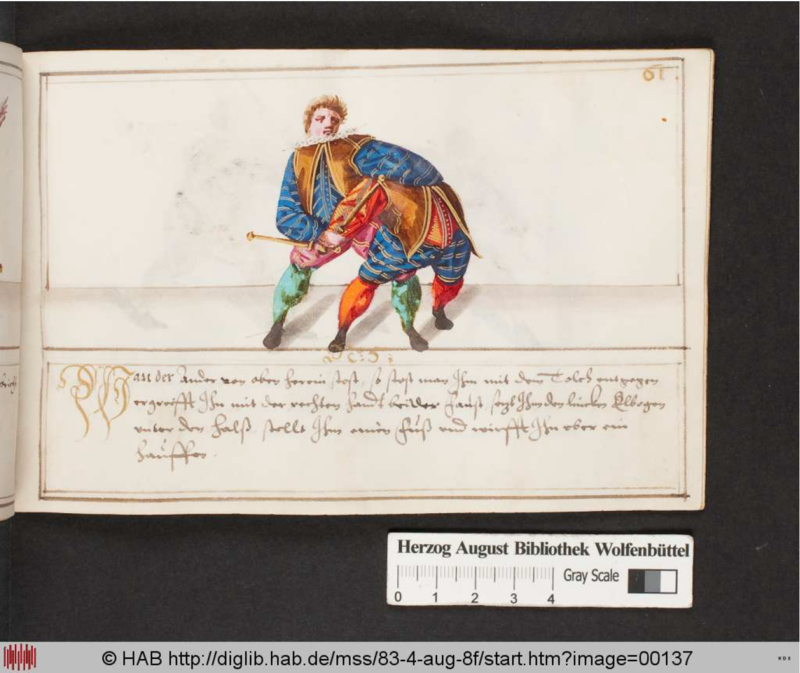 61.
Wan der Ander von oben herein stost, so stost man Ihm mit dem Tolch entgegen
ergreifft Ihn mit der rechten handt beider faust setzt Ihm den lincken Elbogen
unter den halß stellt Ihm einen fuß und wirfft Ihn uber ein
hauffen
Herzog August Bibliothek Wolfenbüttel
Gray Scale
0 1 2 3 4
© HAB http://diglib.hab.de/mss/83-4-aug-8f/start.htm?image=00137